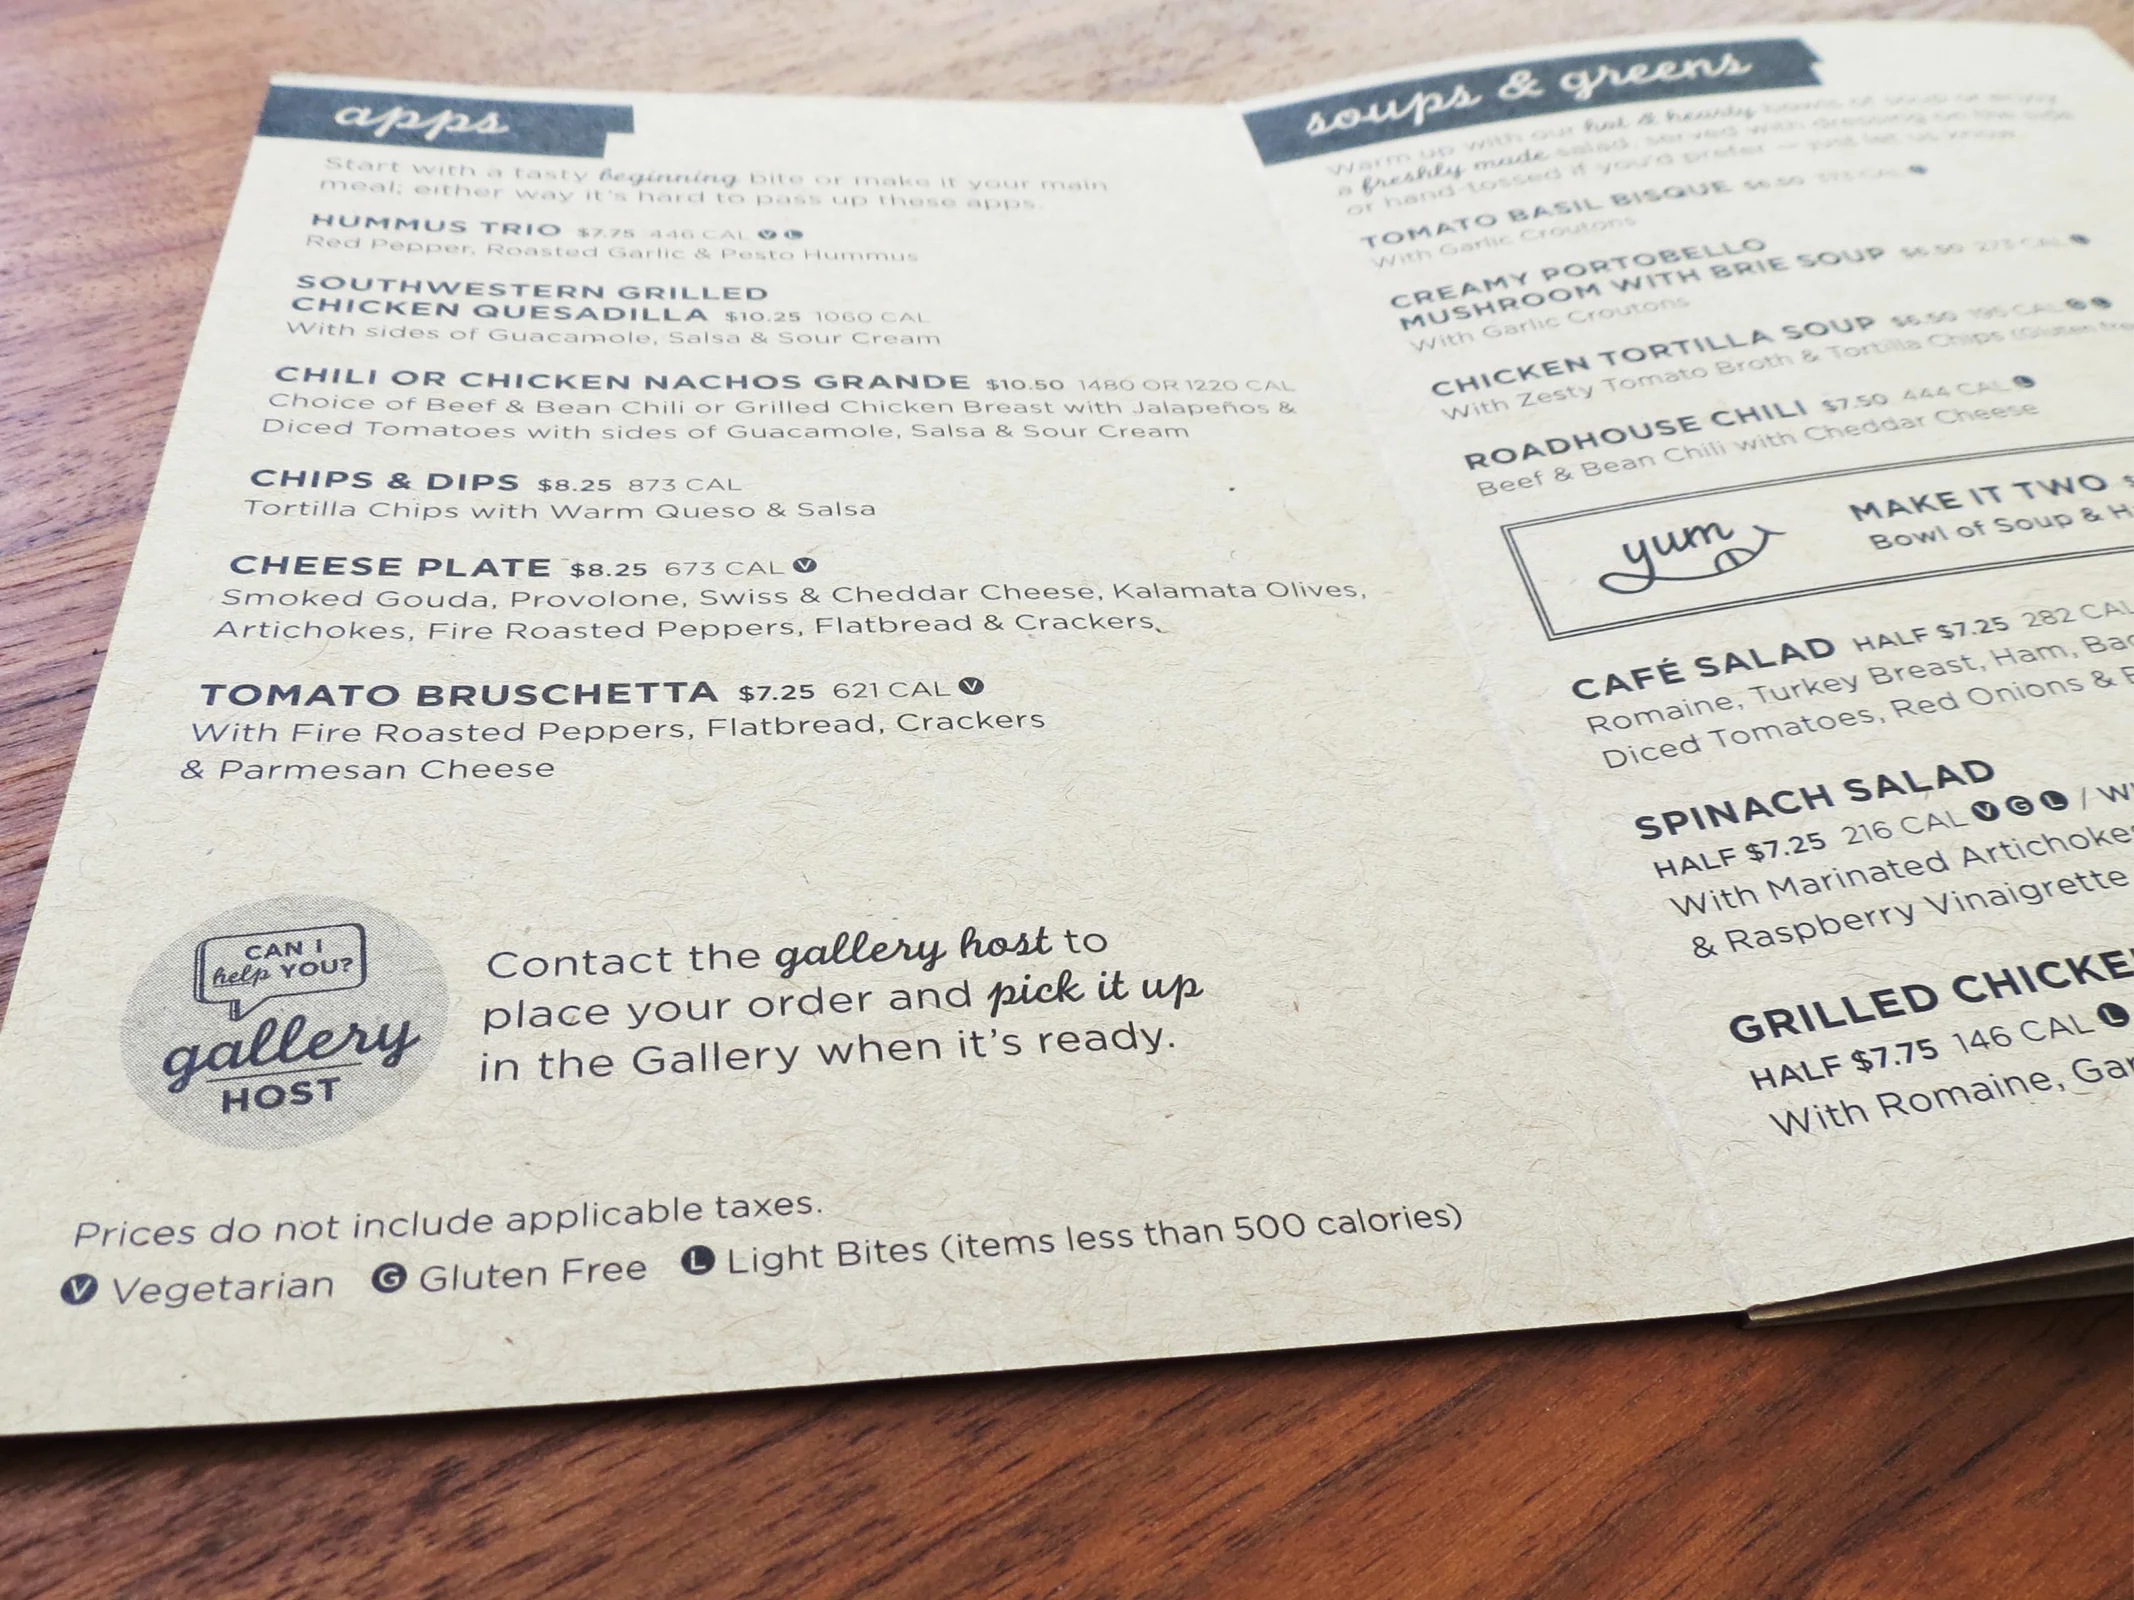 apps
Start with a tasty beginning bite or make it your main
meal; either way it's hard to pass up these apps.
HUMMUS TRIO $7.75 446 CAL V L
Red Pepper, Roasted Garlic & Pesto Hummus
SOUTHWESTERN GRILLED
CHICKEN QUESADILLA $10.25 1060 CAL
With sides of Guacamole, Salsa & Sour Cream
CHILI OR CHICKEN NACHOS GRANDE $10.50 1480 OR 1220 CAL
Choice of Beef & Bean Chili or Grilled Chicken Breast with Jalapeños &
Diced Tomatoes with sides of Guacamole, Salsa & Sour Cream
CHIPS & DIPS $8.25 873 CAL
Tortilla Chips with Warm Queso & Salsa
CHEESE PLATE $8.25 673 CAL V
Smoked Gouda, Provolone, Swiss & Cheddar Cheese, Kalamata Olives,
Artichokes, Fire Roasted Peppers, Flatbread & Crackers
TOMATO BRUSCHETTA $7.25 621 CAL V
With Fire Roasted Peppers, Flatbread, Crackers
& Parmesan Cheese
CAN I
help YOU?
gallery
HOST
Contact the gallery host to
place your order and pick it up
in the Gallery when it's ready.
Prices do not include applicable taxes.
V Vegetarian G Gluten Free L Light Bites (items less than 500 calories)
soups & greens
Warm up with our hot & hearty bowls of soup or enjoy
a freshly made salad, served with dressing on the side
or hand-tossed if you'd prefer — just let us know.
TOMATO BASIL BISQUE $6.50 CAL
With Garlic Croutons
CREAMY PORTOBELLO
MUSHROOM WITH BRIE SOUP $6.50 273 CAL
With Garlic Croutons
CHICKEN TORTILLA SOUP $6.50 195 CAL G L
With Zesty Tomato Broth & Tortilla Chips (Gluten free
ROADHOUSE CHILI $7.50 444 CAL L
Beef & Bean Chili with Cheddar Cheese
yum
MAKE IT TWO $
Bowl of Soup & H
CAFÉ SALAD HALF $7.25 282 CAL
Romaine, Turkey Breast, Ham, Bac
Diced Tomatoes, Red Onions &
SPINACH SALAD
HALF $7.25 216 CAL V G L / W
With Marinated Artichokes
& Raspberry Vinaigrette
GRILLED CHICKE
HALF $7.75 146 CAL L
With Romaine, Gar